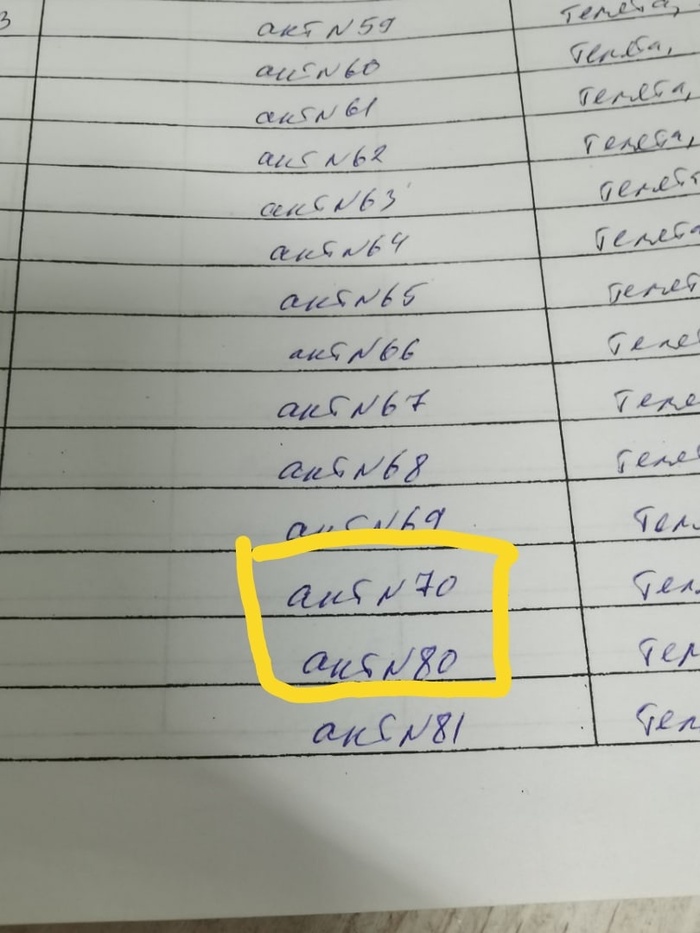 3 акт N59 Телята,
акт N60 Телята,
акт N61 Телята,
акт N62 Телята,
акт N63 Телята
акт N64 Телята
акт N65 Телят
акт N66 Теле
акт N67 Теля
акт N68 Теля
акт N69 Тел
акт N70 Тел
акт N80 Тел
акт N81 Тел